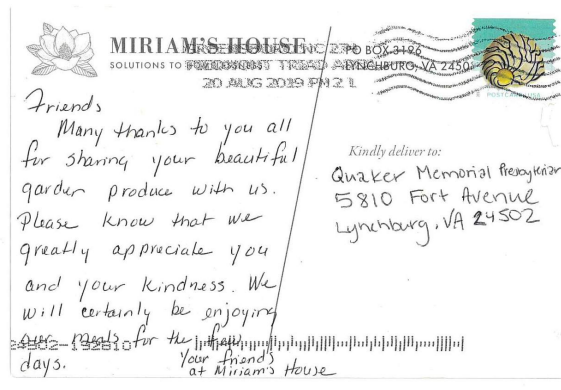 MIRIAM'S HOUSE
SOLUTIONS TO
GREENSBORO NC 27
PIEDMONT TRIAD AREA
20 AUG 2019 PM 2 L
PO BOX 3196
LYNCHBURG, VA 2450
POSTCARD USA
Friends
Many thanks to you all
for sharing your beautiful
garden produce with us.
Please know that we
greatly appreciate you
and your kindness. We
will certainly be enjoying
our meals for the few
days.
Your friends
at Miriam's House
Kindly deliver to:
Quaker Memorial Presbyterian
5810 Fort Avenue
Lynchburg, VA 24502
24502-192810